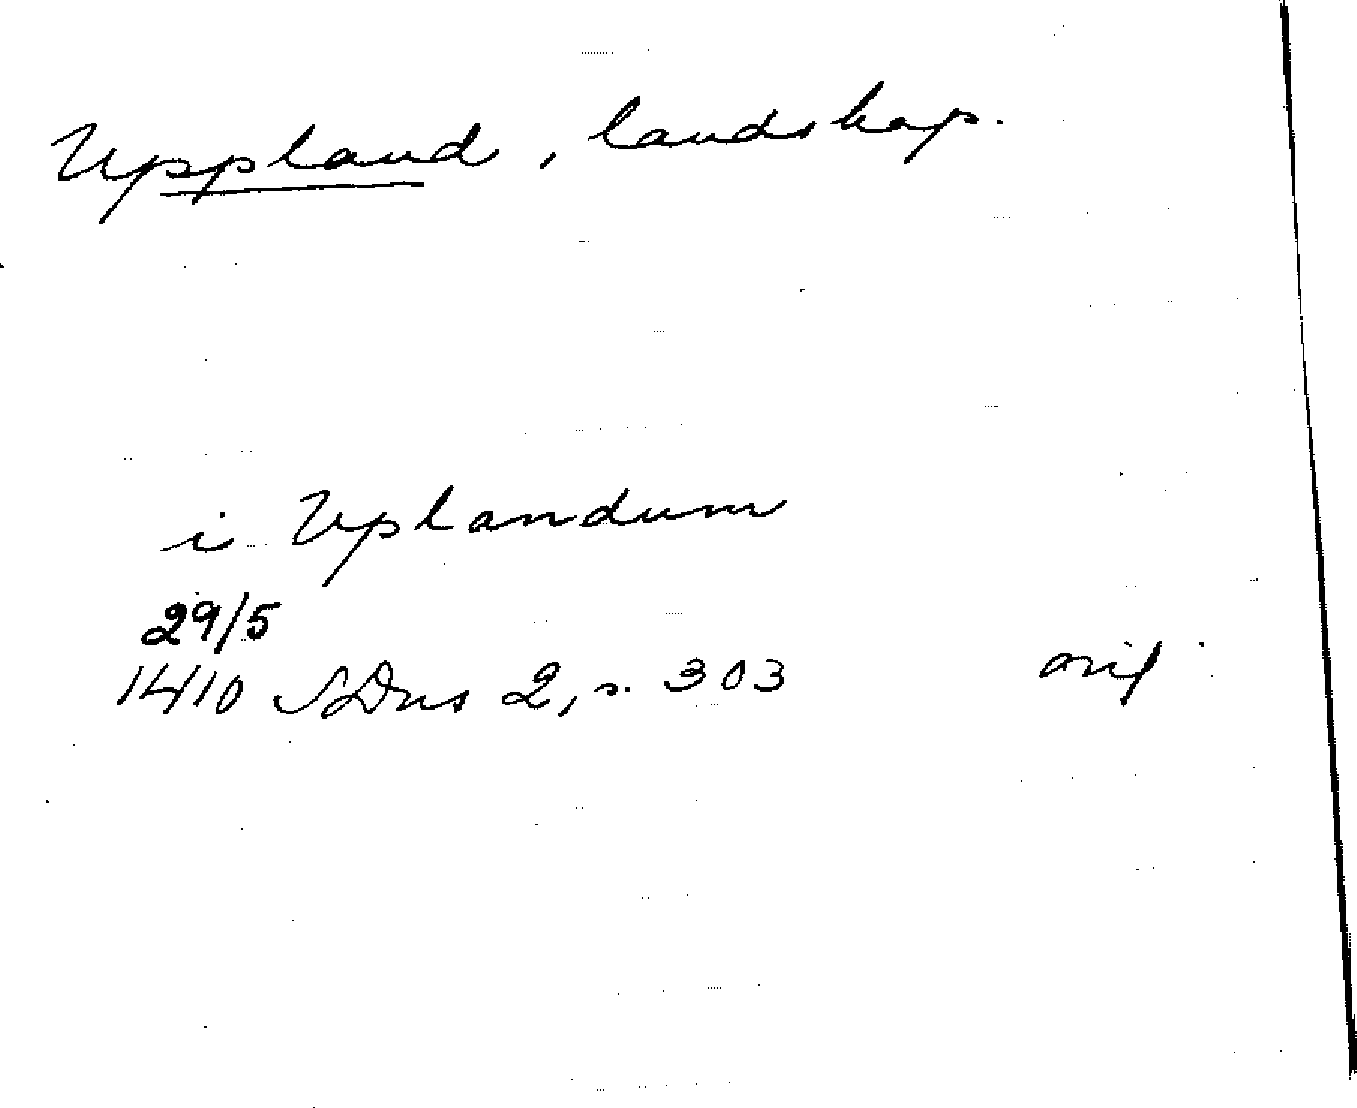 Uppland, landskap.
i Uplandum
29/5
1410 SDns 2, s. 303 orig.